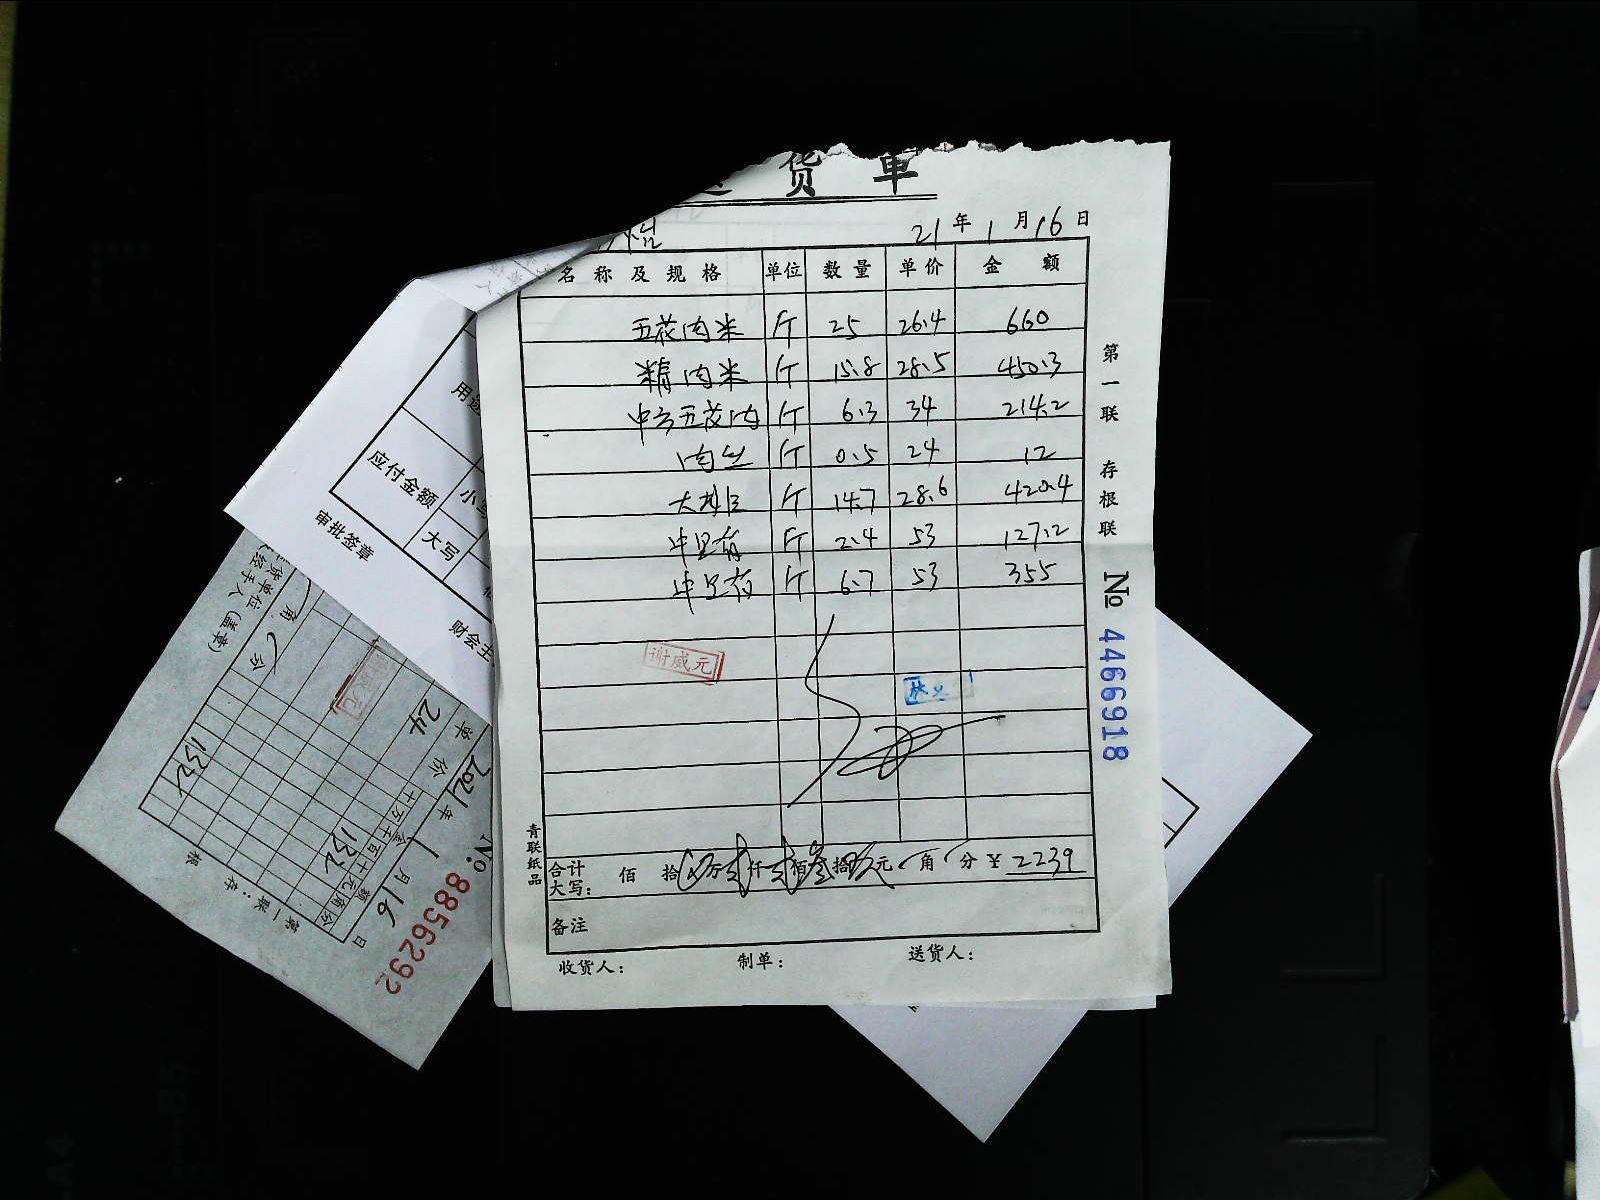 货单
21年1月16日
名称及规格 单位 数量 单价 金额
五花肉米 斤 25 26.4 660
精肉米 斤 15.8 28.5 450.3
中方五花肉 斤 6.3 34 214.2
肉丝 斤 0.5 24 12
大排 斤 14.7 28.6 420.4
斤 2.4 53 127.2
斤 6.7 53 355
谢威元
合计大写： 佰 拾 万贰仟贰佰叁拾玖元 角 分 ¥ 2239
备注
收货人： 制单： 送货人：
青联纸品
第一联 存根联
No 4466918
应付金额
小写
大写
审批签章
财会主
经手人（盖章）
角 分
24
单价
132
132
2021年1月16日
金额
十万千百十元角分
第一联：存根
No: 8856292